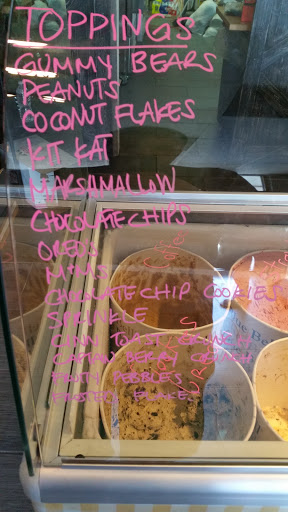 TOPPINGS
GUMMY BEARS
PEANUTS
COCONUT FLAKES
KIT KAT
MARSHMALLOW
CHOCOLATE CHIPS
OREOS
M&MS
CHOCOLATE CHIP COOKIES
SPRINKLE
CINN TOAST CRUNCH
CAPTAIN BERRY CRUNCH
FRUITY PEBBLES
FLAKES